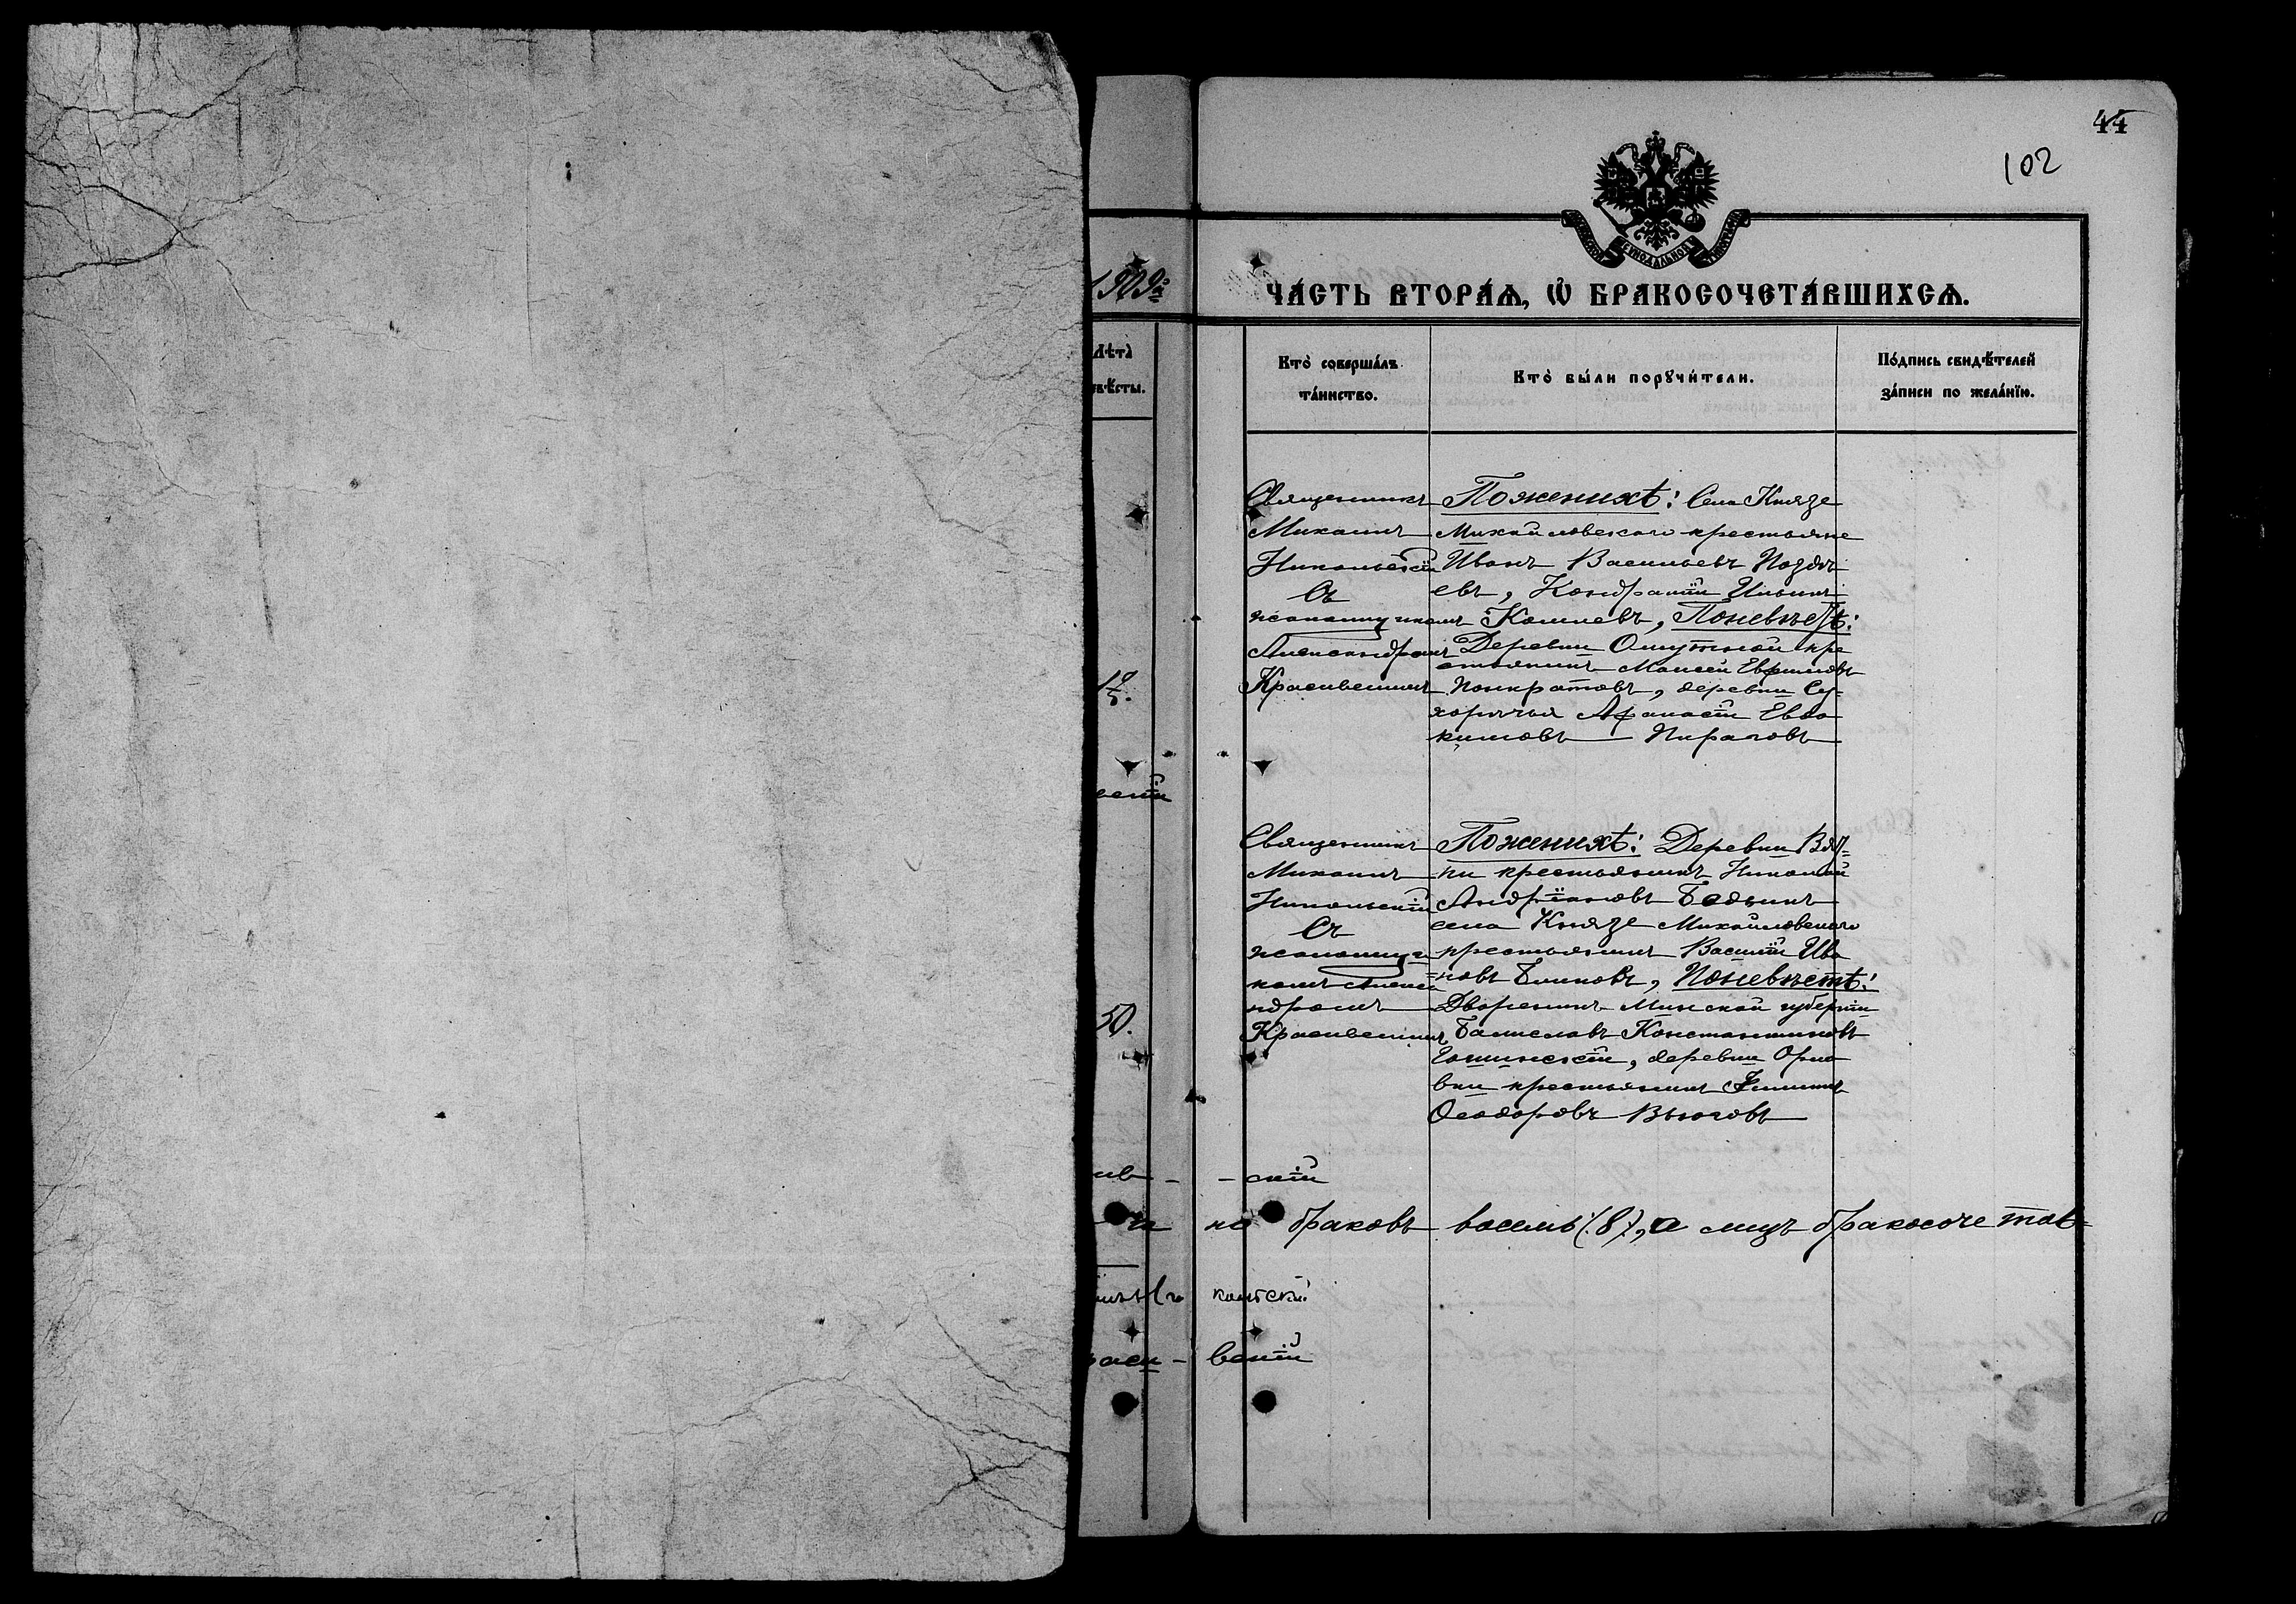 44
102
1909 г.
ЧА́СТЬ ВТОРА́Ѧ, Ѡ҆ БРАКОСОЧЕТА́ВШИХСѦ.
Лѣта̀
вѣ́сты.
Кто̀ соверша́лъ
та́инство.
Кто̀ бы́ли порꙋчи́тели.
По́дпись свидѣ́телей
за́писи по жела́нїю.
Священникъ
Михаилъ
Никольскій
Съ
псаломщикомъ
Александромъ
Красивскимъ
По женихѣ: Села Князе
Михайловскаго крестьяне
Иванъ Васильевъ Поздн
евъ, Кондратій Ильинъ
Кошлевъ, По невѣстѣ:
Деревни Ошутной кре
стьянинъ Моисей Ефимовъ
Понкратовъ, деревни Су-
хоричья Афанасій Евдо
кимовъ Пираговъ
17/5.
Священникъ
Михаилъ
Никольскій
Съ
псаломщи
комъ Алекса
ндромъ
Красивскимъ
По женихѣ: Деревни
крестьянинъ Николай
Андріановъ Бадьинъ
села Князе Михайловскаго
крестьянинъ Василій Ива
новъ Блиновъ, По невѣстѣ:
Дворянинъ Минской губерніи
Константиновъ
деревни Орло
вки крестьянинъ Филиппъ
Ѳеодоровъ Вьюговъ
50.
скій
на браковъ восемь (8), а лицъ бракосочетав-
вскій